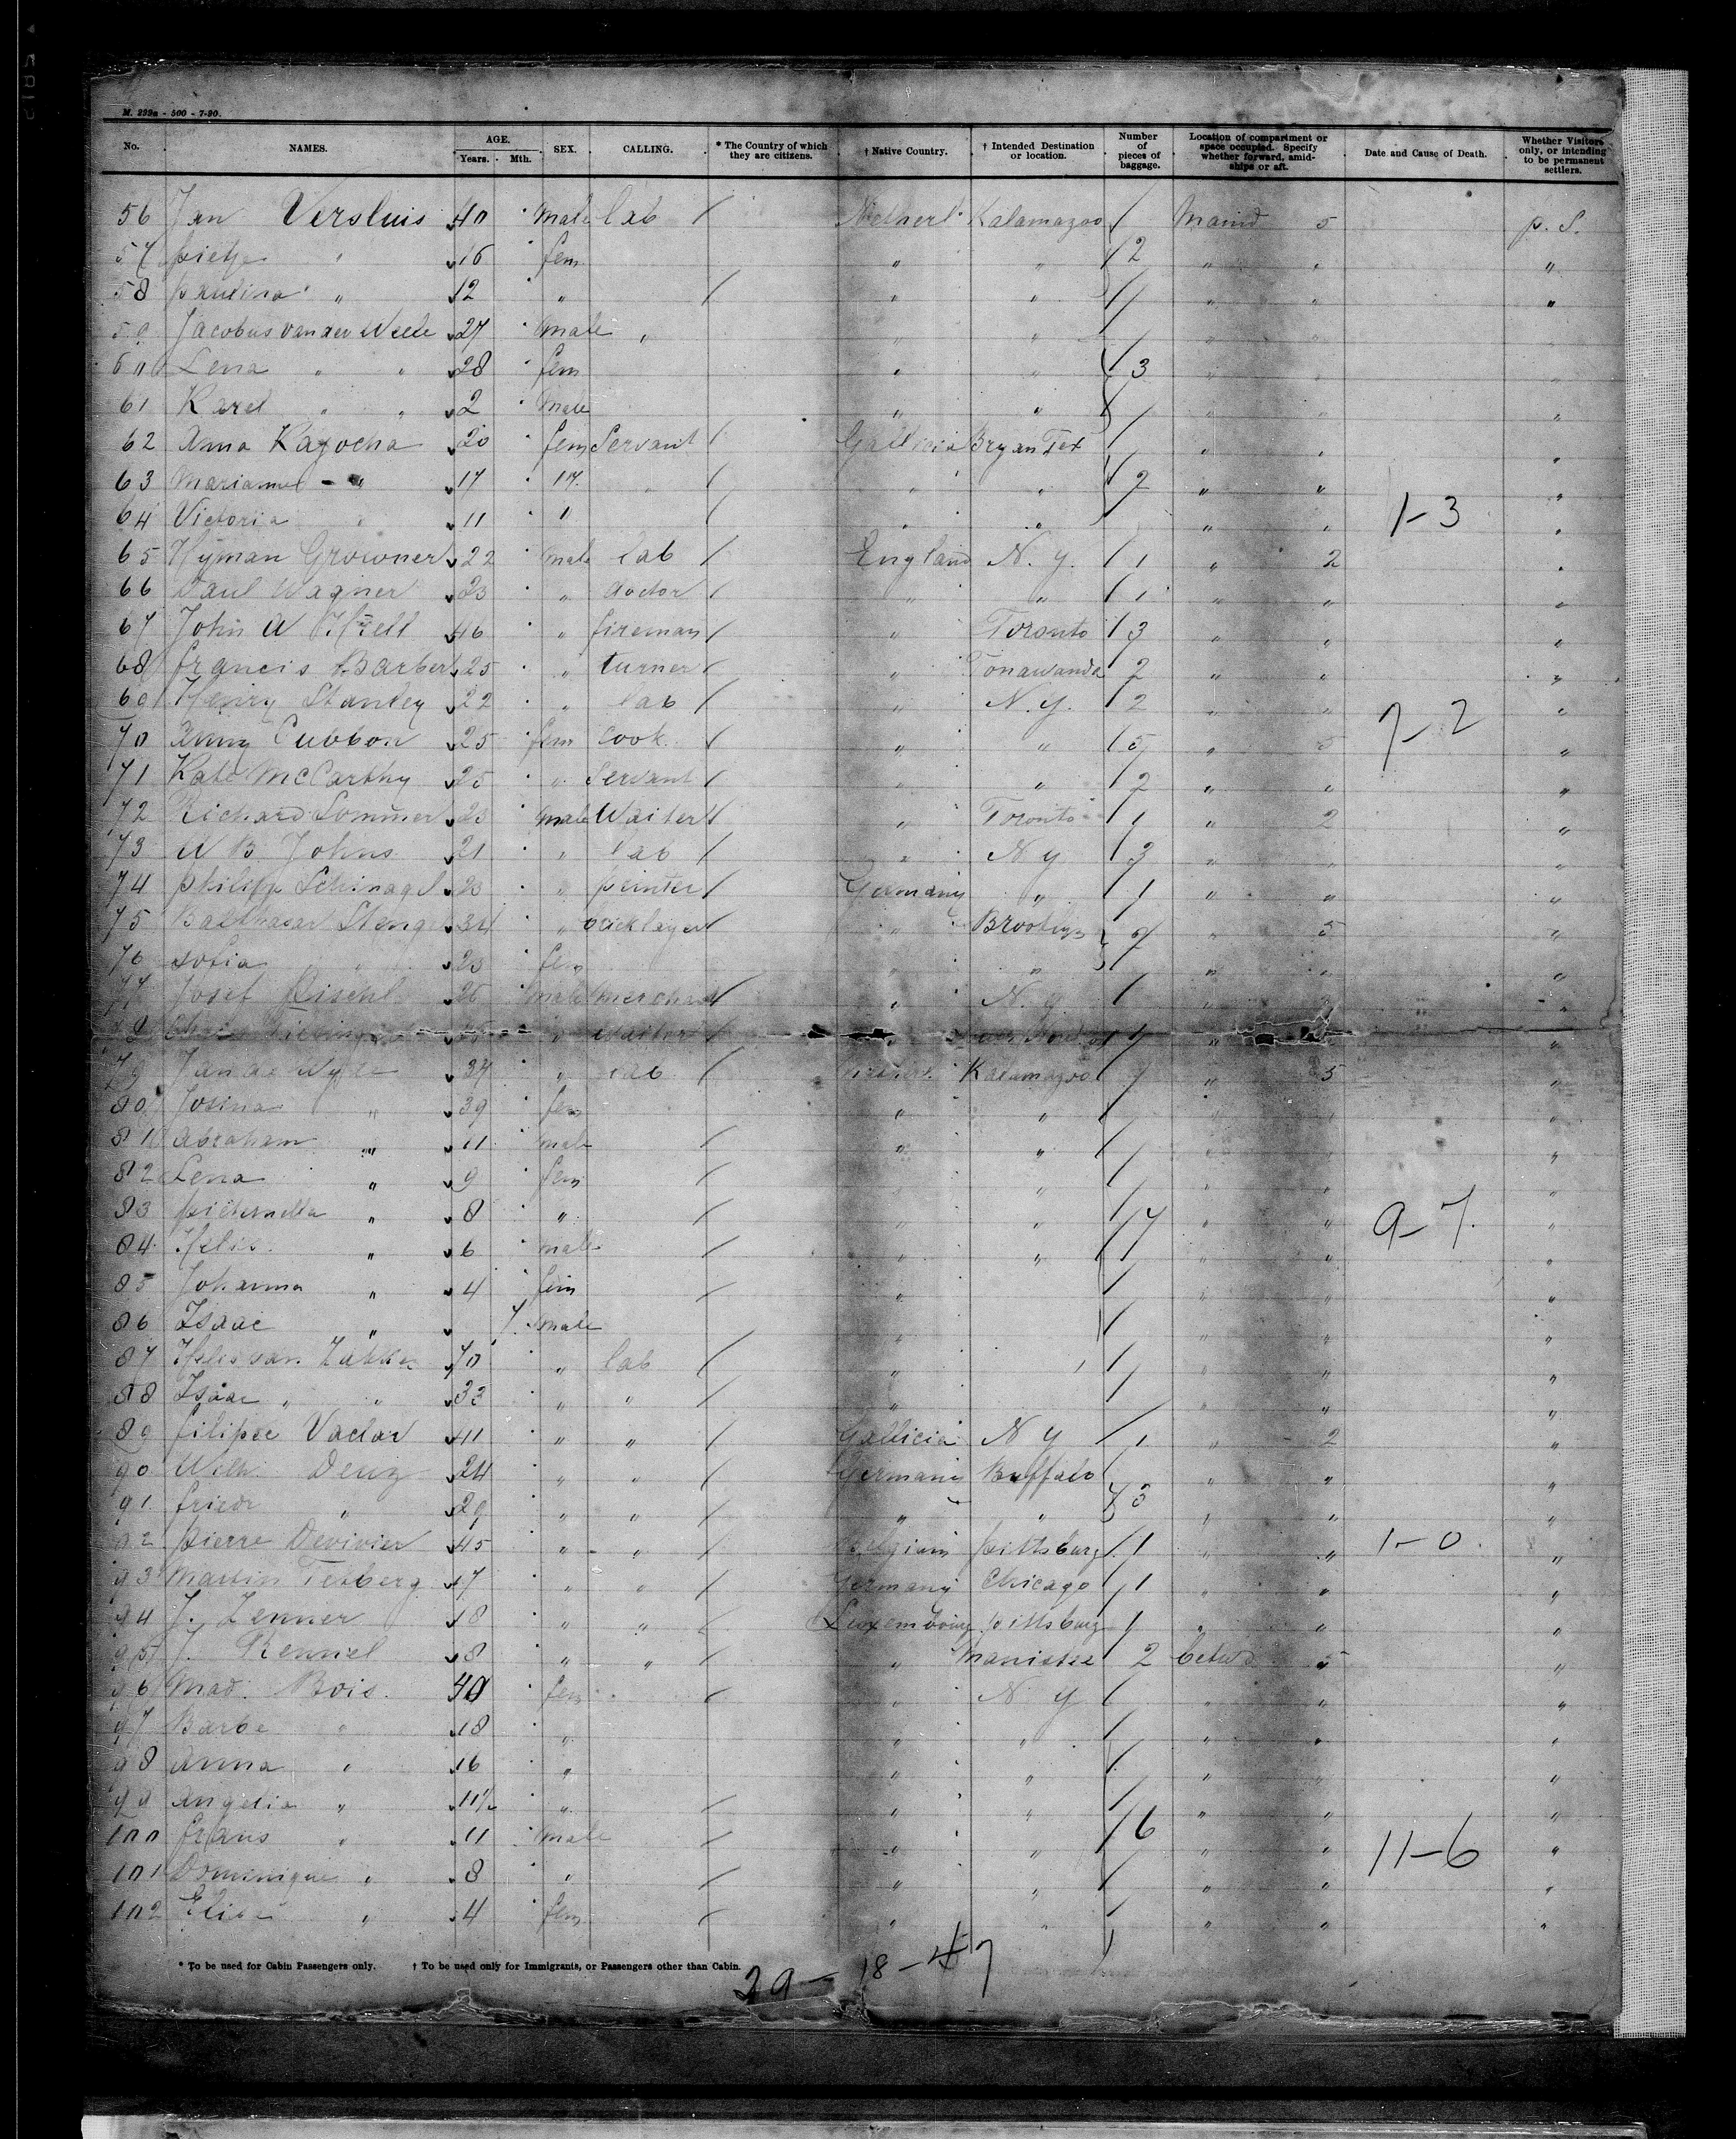 M. 229a - 500 - 7-90.
No. NAMES. AGE. Years. Mth. SEX. CALLING. * The Country of which they are citizens. † Native Country. † Intended Destination or location. Number of pieces of baggage. Location of compartment or space occupied. Specify whether forward, amidships or aft. Date and Cause of Death. Whether Visitors only, or intending to be permanent settlers.
56 Jan Versluis 40 male lab / Netherl. Kalamazoo / 5 p. S.
57 " 16 fem " " 2 " "
58 paulina " 12 " / " " " " "
59 Jacobus van der Weele 27 male " " " " "
60 Lena " " 28 fem " " 3 " "
61 Karel " " 2 male " " " " "
62 Anna 20 fem Servant / Gallicia Bryan Tex " " "
63 " 17 " / " " 2 " " "
64 Victoria " 11 " / " " " " 1-3 "
65 Hyman 22 male lab / England N. Y. 1 " 2 "
66 Paul Wagner 23 " doctor / " " 1 " " "
67 John W 46 " fireman / " Toronto 3 " " "
68 francis Barber 25 " turner / " Tonawanda 2 " " "
69 Henry Stanley 22 " lab / " N. Y. 2 " " 7-2 "
70 Cubbon 25 fem cook / " " 5 " 5 "
71 Kate McCarthy 25 " Servant / " " 2 " " "
72 Richard Sommer 23 male Waiter / " Toronto 1 " 2 "
73 W B Johns 21 " lab / " N Y 3 " " "
74 philipp Schinagel 23 " / Germany " 1 " " "
75 Balthasar Steng 34 " bricklayer / " Brooklyn 2 " 5 "
76 sofia " 23 fem " " " " "
77 Josef 25 male merchant / " N. Y. 1 " "
waiter / " 1 " "
79 Jan de 37 " lab / Kalamazoo " 5 "
80 Josina " 39 fem " " " " "
81 Abraham " 11 male / " " " " "
82 Lena " 9 fem / " " " " "
83 " 8 " / " " 7 " " 9-7. "
84 " 6 male / " " " " "
85 Johanna " 4 fem / " " " "
86 Isaac " 7 male " " " "
87 van 70 " lab / " " " "
88 Isaac " " 33 " " / " " " "
89 filipec Vaclav 41 " " / Gallicia N Y 1 " 2 "
90 Wilh. 24 " " / Germany Buffalo " " "
91 friedr " 29 " " / " " 3 " " "
92 pierre Devivier 45 " " / Belgium pittsburg 1 " " 1-0. "
93 Martin 17 " " / Germany Chicago 1 " " "
94 J. Zenner 18 " " / Luxembourg pittsburg 1 " " "
95 J. 18 " " / " Manistee 2 betwd 5 "
96 Mad. Bois. 40 fem / " N Y " " "
97 Barbe " 18 " " " " " "
98 Anna " 16 " " " " " "
99 " 11½ " / " " " " "
100 frans " 11 male / " " 6 " " 11-6 "
101 Dominique " 8 " / " " " " "
102 " 4 fem / " " " " "
* To be used for Cabin Passengers only. † To be used only for Immigrants, or Passengers other than Cabin.
29 - 18 - 47